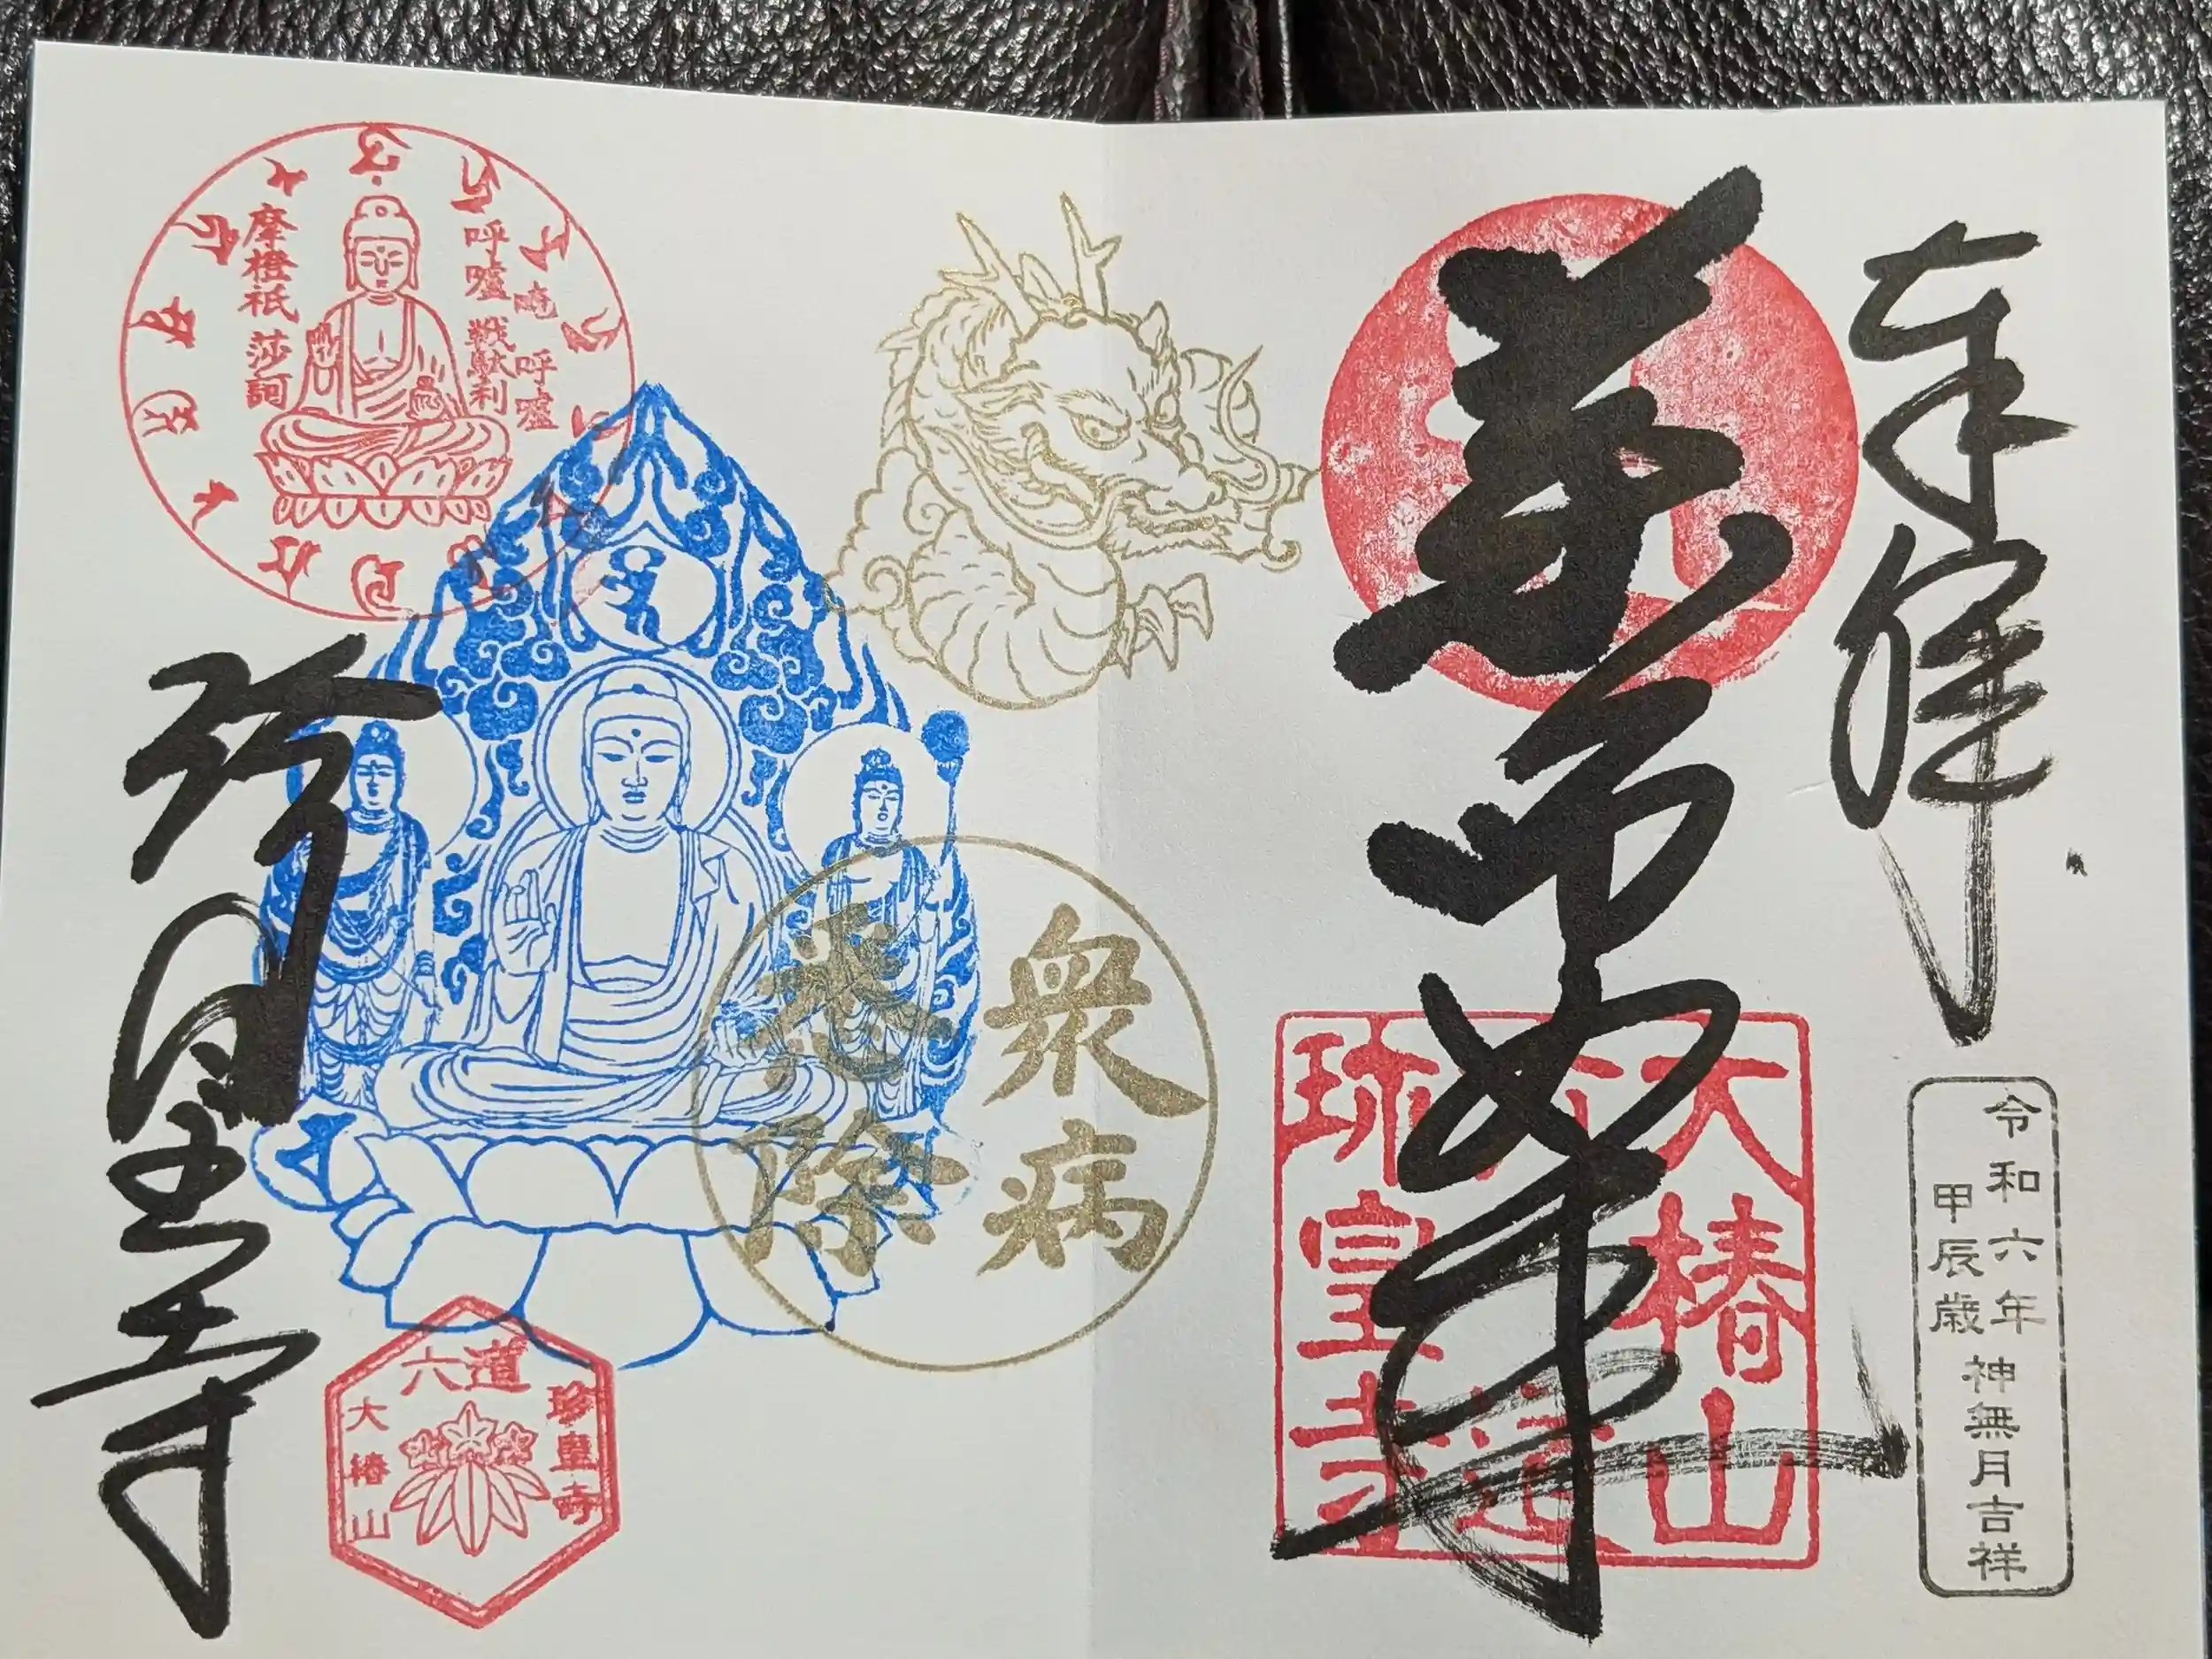 奉拝
令和六年
甲辰歳
神無月吉祥
薬師如来
大椿山
六道
珎皇寺
衆病
悉除
唵
呼嚧
呼嚧
戦駄利
摩橙祇
莎訶
珍皇寺
六道
珍皇寺
大椿山